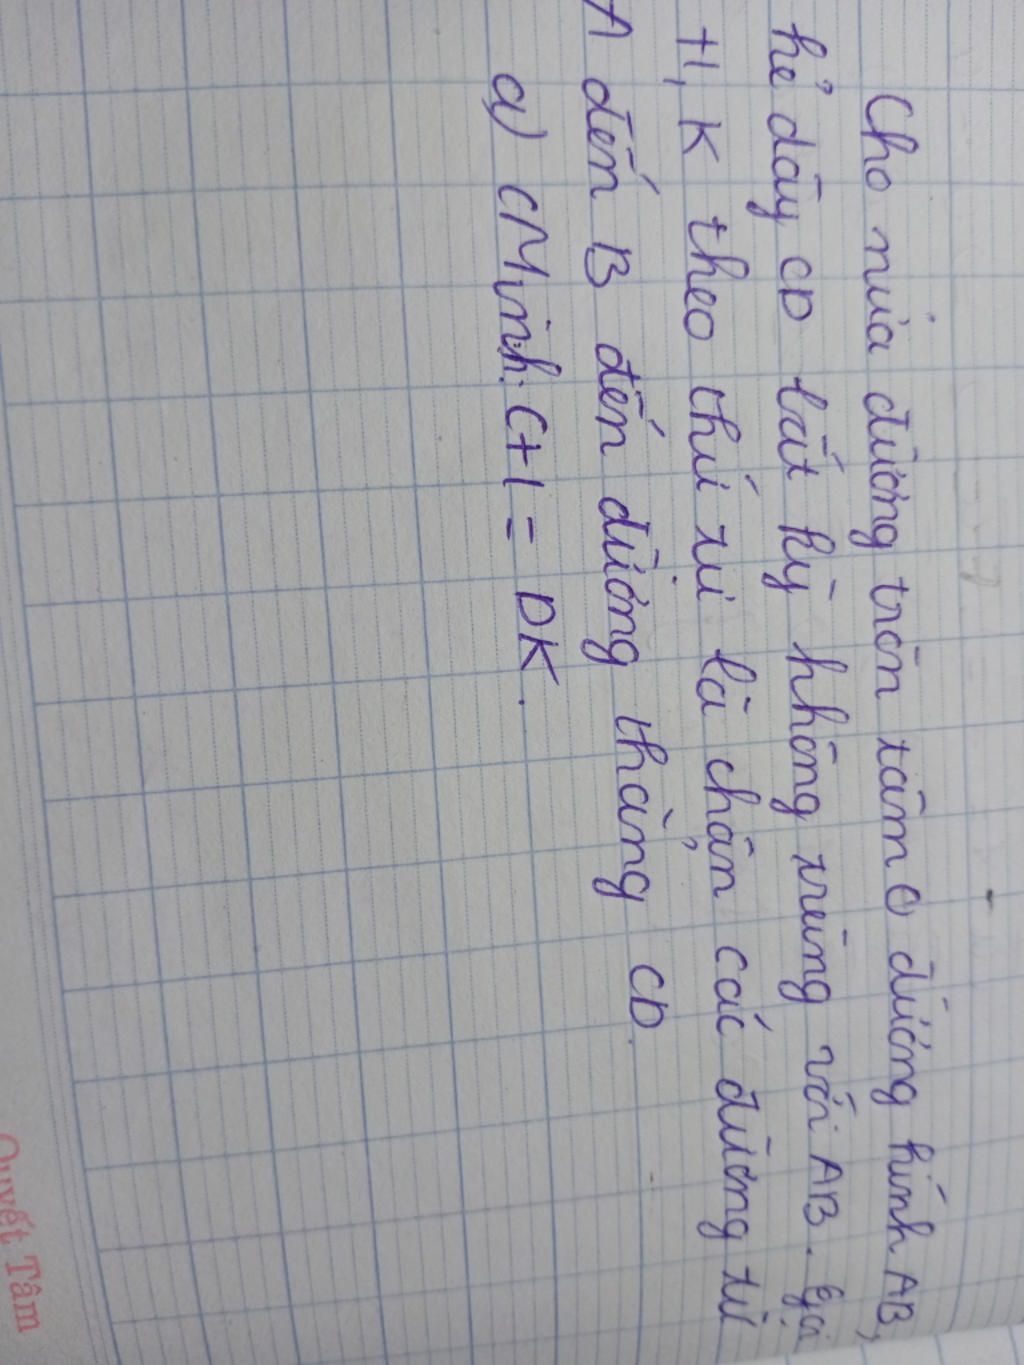 Cho nửa đường tròn tâm O đường kính AB,
kẻ dây CD bất kỳ không trùng với AB. gọi
H, K theo thứ tự là chân các đường từ
A đến B đến đường thẳng CD.
a) CMinh: CH = DK.
Quyết Tâm